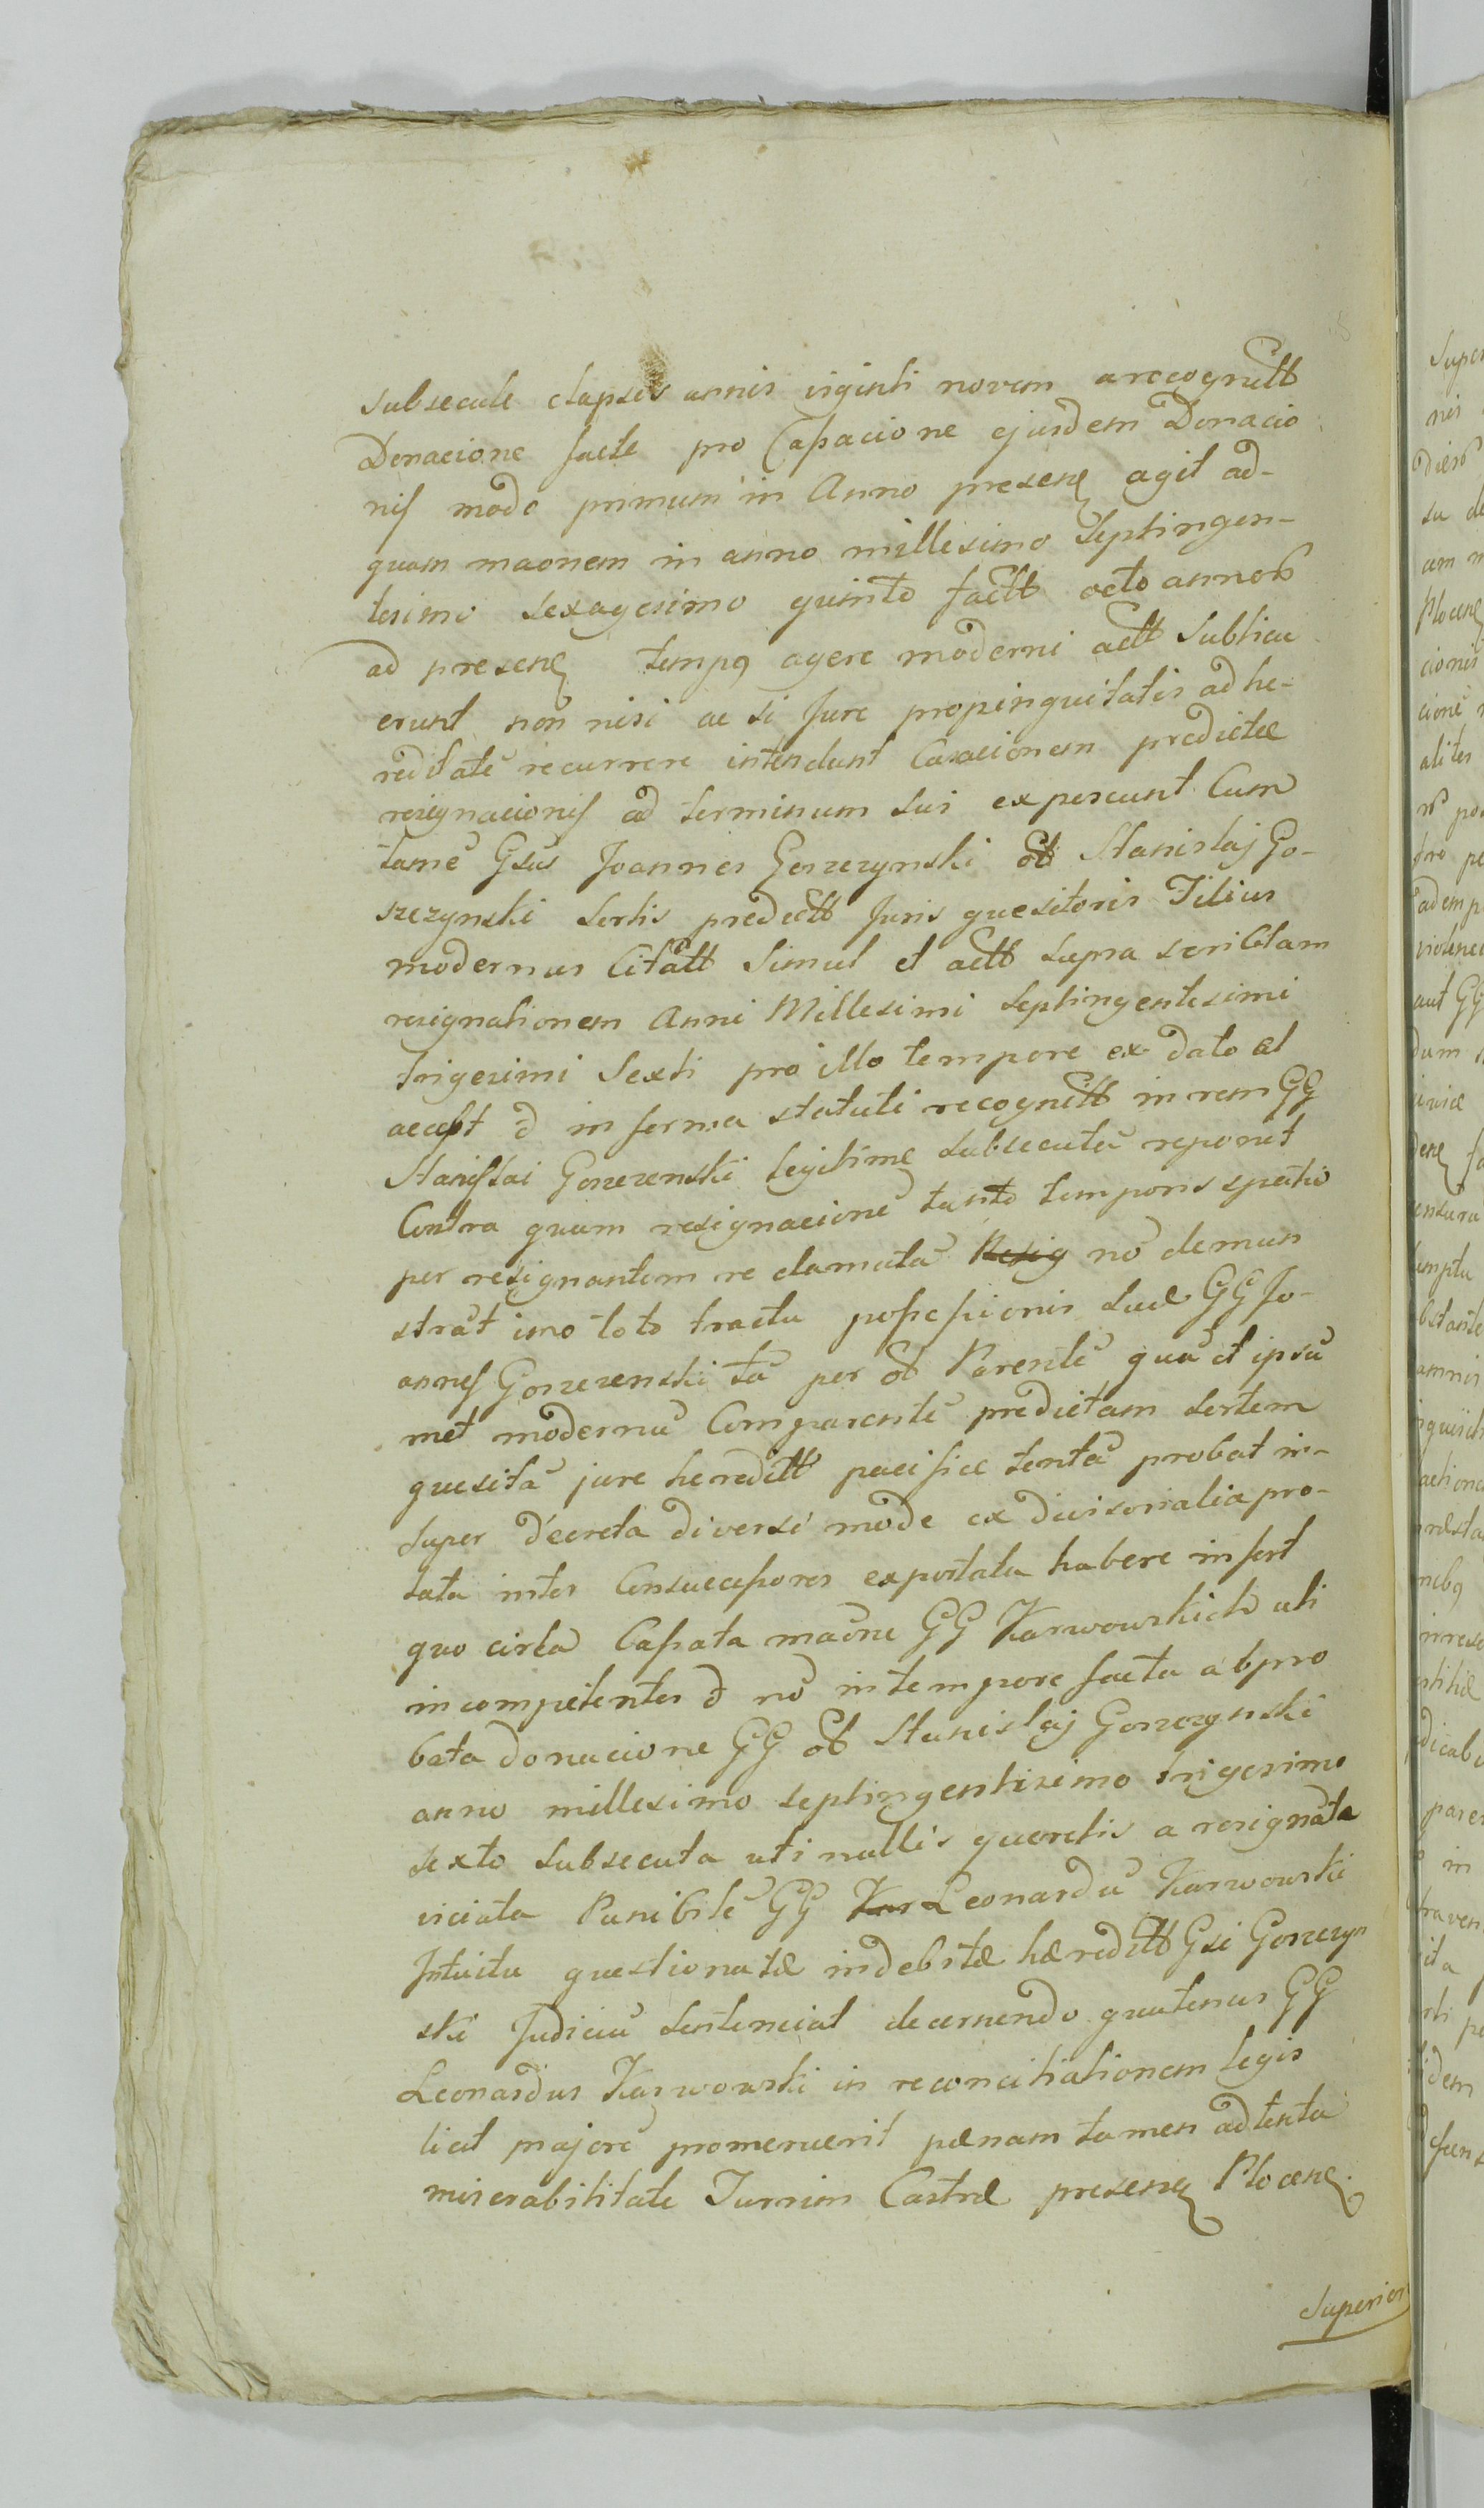 subsecute elapsis annis viginti novem a recognitt
Donacione facte pro Cassacione ejusdem Donacio
nis modo primum in Anno presenꝫ agit ad-
quam maonem in anno millesimo Septingen-
tesimo sexagesimo quinto factt octo annor
ad presenꝫ tempꝯ agere moderni actt subticu
erunt non nisi ac si Jure propinquitatis ad he-
reditatē recurrere intendunt Cassacionem predictæ
resignacionis ad terminum sui exposcunt Cum
tamē Gsus Joannes Goszczynski ol Stanislaj Go-
szczynski Sortis predictt Juris quesitoris Filius
modernus Citatt simul et actt supra scriptam
resignationem Anni Millesimi Septingentesimi
trigesimi Sexti pro illo tempore ex dato et
accept d in forma statuti recognitt in rem GG
Stanislai Goszczenski legitimꝫ subsecutā reponit
Contra quam resignacionē tanto temporis spatio
per resignantem re clamatā Resig nō demun
strat imo toto tractu possessionis suæ GG Jo-
annes Goszczenski tā per ol Parentē quā et ipsū
met modernū Comparentē predictam sortem
quesitā jure hereditt pacifice tentā probat in-
super decreta diversi mode ex divisorialia pro-
lata inter Consuccessores exportata habere infert
quo circa Cassata maone GG Karwowskich uti
incompetenter d nō in tempore facta abpro
bata donacione GG ol Stanislaj Goszczynski
anno millesimo septingentisimo trigesimo
sexto subsecuta uti nullis querelis a resignata
viciata Punibilē GG Kar Leonardū Karwowski
Intuitu questionatæ indebitæ hæreditt Gsi Goszczyn
ski Judiciū sentenciat decernendo quatenus GG
Leonardus Karwowski in reconciliationem legis
licet majorē promeruerit pænam tamen ad tenta
miserabilitate Turrim Castræ presenꝫ Plocenꝫ
Superior